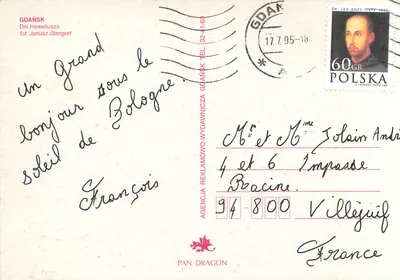 GDAŃSK
Dni Heweliusza
fot. Janusz Stangret
Un Grand
bonjour sous le
soleil de Bologne.
François
AGENCJA REKLAMOWO-WYDAWNICZA GDAŃSK TEL. 32-41-69
PAN DRAGON
GDAŃ
17.7.95-18
60GR
POLSKA
Mr et Mme Jolain André
4 et 6 Impasse
Racine.
94-800 Villejuif
France